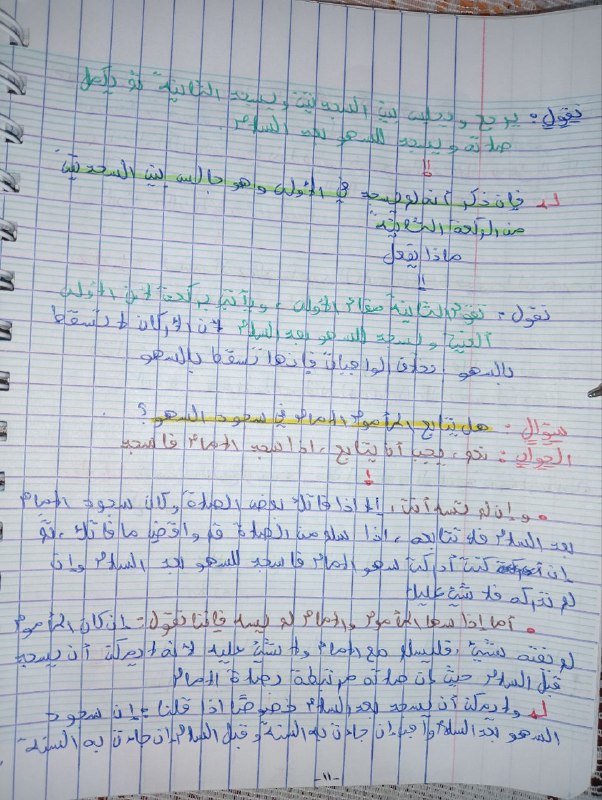 نقول: يرجع ويجلس بين السجدتين ويسجد الثانية ثم يكمل
صلاته ويسجد للسهو بعد السلام.
فإن ذكر أنه لم يسجد في الأولى وهو جالس بين السجدتين
من الركعة الثانية
ماذا يفعل
نقول: تقوم الثانية مقام الأولى، ويأتي بركعة لأن الأولى
ألغيت ويسجد للسهو بعد السلام لأن الأركان لا تسقط
بالسهو بخلاف الواجبات فإنها تسقط بالسهو
سؤال: هل يتابع المأموم الإمام في سجود السهو؟
الجواب: نعم، يجب أن يتابع، إذا سجد الإمام فاسجد
• وإن لم تسه أنت، إلا إذا فاتك بعض الصلاة وكان سجود الإمام
بعد السلام فلا تتابعه، إذا سلم من الصلاة قم واقض ما فاتك، ثم
إن كنت أدركت سهو الإمام فاسجد للسهو بعد السلام وإن
لم تدركه فلا شيء عليك
• أما إذا سها المأموم والإمام لم يسه فإننا نقول: إن كان المأموم
لم يفته شيء، فليسلم مع الإمام ولا شيء عليه لأنه لا يمكن أن يسجد
قبل السلام حيث إن صلاته مرتبطة بصلاة الإمام
ولا يمكن أن يسجد بعد السلام خصوصًا إذا قلنا: إن سجود
السهو بعد السلام واجب إن جاءت به السنة وقبل السلام إن جاءت به السنة
-١١-